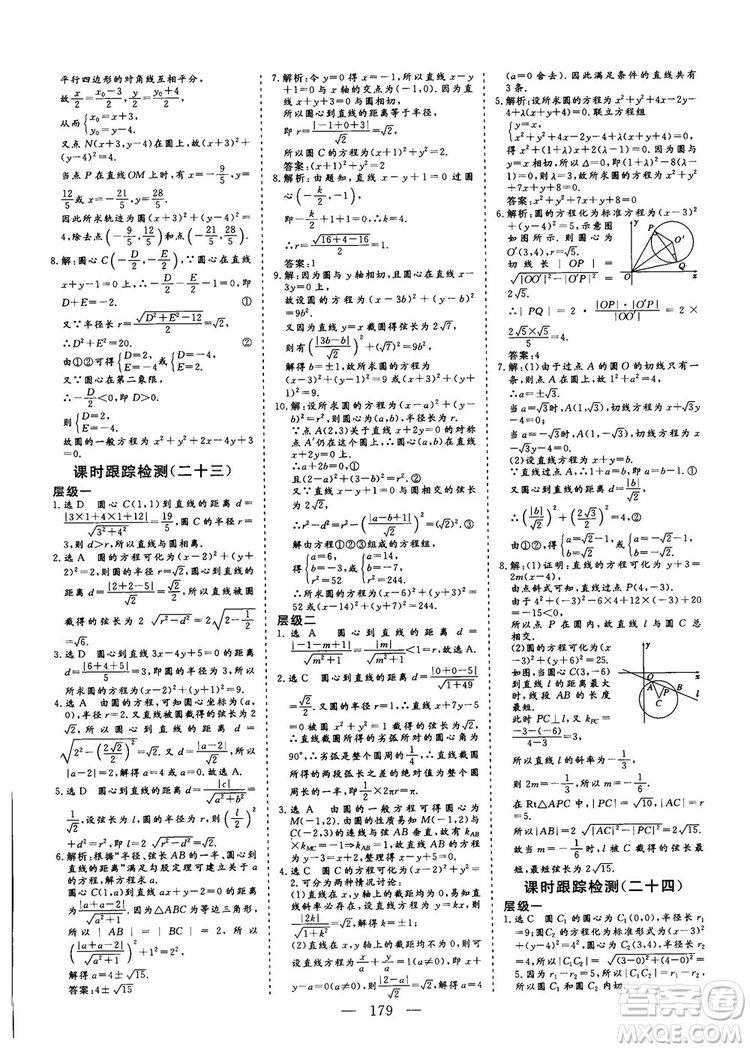 平行四边形的对角线互相平分,
故x/2=(x₀-3)/2, y/2=(y₀+4)/2.
从而{x₀=x+3, y₀=y-4.
又点 N(x+3,y-4)在圆上,故(x+3)²+(y-4)²=4.
当点 P 在直线 OM 上时,有 x=-9/5,
y=12/5或 x=-21/5,y=28/5.
因此所求轨迹为圆(x+3)²+(y-4)²=
4,除去点(-9/5,12/5)和点(-21/5,28/5).
8.解:圆心C(-D/2,-E/2),∵圆心在直线
x+y-1=0 上,∴-D/2-E/2-1=0,即
D+E=-2. ①
又∵半径长 r=√(D²+E²-12)/2=√2,
∴D²+E²=20. ②
由①②可得{D=2, E=-4 或{D=-4, E=2.
又∵圆心在第二象限,
∴-D/2<0,即 D>0.
则{D=2, E=-4.
故圆的一般方程为 x²+y²+2x-4y+3
=0.
课时跟踪检测(二十三)
层级一
1.选 D 圆心 C(1,1)到直线的距离 d=
|3×1+4×1+12|/√(3²+4²)=19/5,圆 C 的半径 r=
3,则 d>r,所以直线与圆相离.
2.选 A 圆的方程可化为(x-2)²+(y-
2)²=2,则圆的半径 r=√2,圆心到直
线的距离 d=|2+2-5|/√2=√2/2,所以直线
被圆截得的弦长为2√(r²-d²)=2√(2-1/2)
=√6.
3.选 D 圆心到直线 3x-4y+5=0 的距
离 d=|6+4+5|/5=3,即圆的半径为 3,
所以所求圆的方程为(x-2)²+(y+1)²=9.
4.选 A 由圆的方程,可知圆心坐标为
(a,0),半径 r=2.又直线被圆截得的弦
长为 2√2,所以圆心到直线的距离 d=
√(2²-(2√2/2)²)=√2.又 d=|a-2|/√2,所以
|a-2|=2,解得 a=4 或 0.故选 A.
5.选 A 圆心到直线的距离 d=|c|/√(a²+b²)=
1/√2,设弦长为 l,圆的半径为 r,则(l/2)²
+d²=r²,即 l=2√(r²-d²)=√2.
6.解析:根据“半径、弦长 AB 的一半、圆心到
直线的距离”满足勾股定理可建立关于 a
的方程,解方程求 a.
圆心 C(1,a)到直线 ax+y-2=0 的距离为
|a+a-2|/√(a²+1).因为△ABC 为等边三角形,
所以|AB|=|BC|=2,所以
(|a+a-2|/√(a²+1))²+1²=2²,
解得 a=4±√15.
答案:4±√15
7.解析:令 y=0 得 x=-1,所以直线 x-
y+1=0 与 x 轴的交点为(-1,0).因为
直线 x+y+3=0 与圆相切,
所以圆心到直线的距离等于半径,
即 r=|-1+0+3|/√2=√2,
所以圆 C 的方程为(x+1)²+y²=2.
答案:(x+1)²+y²=2
8.解析:由题知,直线 x-y+1=0 过圆
心(-k/2,-1),
即-k/2+1+1=0,∴k=4.
∴r=√(16+4-16)/2=1.
答案:1
9.解:因为圆与 y 轴相切,且圆心在直线 x-
3y=0 上,
故设圆的方程为(x-3b)²+(y-b)²
=9b².
又因为直线 y=x 截圆得弦长为 2√7,
则有(|3b-b|/√2)²+(√7)²=9b²,
解得 b=±1,故所求圆的方程为
(x-3)²+(y-1)²=9 或(x+3)²+
(y+1)²=9.
10.解:设所求圆的方程为(x-a)²+(y-
b)²=r²,则圆心为(a,b),半径长为 r.
∵点 A(2,3)关于直线 x+2y=0 的对
称点 A′仍在这个圆上,
∴圆心(a,b)在直线 x+2y=0 上.
∴a+2b=0. ①
且(2-a)²+(3-b)²=r². ②
又∵直线 x-y+1=0 与圆相交的弦长
为 2√2,
∴r²-d²=r²-(|a-b+1|/√2)²=(√2)². ③
解由方程①②③组成的方程组,
得{a=6, b=-3, r²=52 或{a=14, b=-7, r²=244.
故所求圆的方程为(x-6)²+(y+3)²=
52 或(x-14)²+(y+7)²=244.
层级二
1.选 A 圆心到直线的距离 d=
|-1-m+1|/√(m²+1)=|m|/√(m²+1)<1<√5.
2.选 C 圆心到直线的距离 d=|0+0-5|/√(1+49)
=√2/2.又∵圆的半径 r=1,
∴直线 x+7y-5=0 被圆 x²+y²=1 截
得的弦长为√2.
∴直线截圆所得的劣弧所对的圆心角为
90°.∴劣弧是整个圆周的1/4,∴直线截圆
所得的两段弧长之差的绝对值为整个圆
周长的一半,即1/2×2πr=π.
3.选 A 由圆的一般方程可得圆心为
M(-1,2).由圆的性质易知 M(-1,2)与
C(-2,3)的连线与弦 AB 垂直,故有 k_AB
×k_MC=-1⇒k_AB=1,故直线 AB 的方
程为 y-3=x+2,即 x-y+5=0.
4.选 C 圆心坐标为(2,0),半径长为√2,分两种情况讨论:
(1)直线在 x,y 轴上的截距均为 0,易知直
线斜率必存在,设直线方程为 y=kx,则
|2k|/√(1+k²)=√2,解得 k=±1.
(2)直线在 x,y 轴上的截距均不为 0,设
直线方程为x/a+y/a=1(a≠0),即 x+y
-a=0(a≠0),则|2-a|/√2=√2,解得 a=4
(a=0 舍去).因此满足条件的直线共有
3 条.
5.解析:设所求圆的方程为 x²+y²+2x-4y+1+λ(x²+y²-1)=0
答案:x²+y²+7x+y+8=0
6.解析:圆的方程化为标准方程为(x-3)²
+(y-4)²=5,示意图
如图所示.
则圆心为 O′(3,4),r=√5.
切线长|OP|=
√(|OO′|²-|O′P|²)=
2√5.
∴|PQ|=2·|OP|·|O′P|/|OO′|=2×
2√5×√5/5=4.
答案:4
7.解:(1)由于过点 A 的圆 O 的切线只有一
条,则点 A 在圆上,故 1²+a²=4,
∴a=±√3.
当 a=√3时,A(1,√3),切线方程为 x+√3y
-4=0;
当 a=-√3时,A(1,-√3),切线方程为 x-√3y
-4=0.
(2)设直线方程为 x+y=b,
由于直线过点 A,∴1+a=b,a=b-1.
又圆心到直线的距离 d=|b|/√2,
∴(|b|/√2)²+(2√3/2)²=4,
∴b=±√2.
∴{a=√2-1, b=√2 或{a=-√2-1, b=-√2.
8.解:(1)证明:直线方程可化为 y+3=
2m(x-4),
由点斜式可知,直线过点 P(4,-3).
由于 4²+(-3)²-6×4+12×(-3)+20=-15<0,所以点 P 在圆内,故直线 l 与圆 C 总
相交.
(2)圆的方程可化为
(x-3)²+(y+6)²=25.
如图,当圆心 C(3,-6)
到直线 l 的距离最大时,
线段 AB 的长度最短.
此时 PC⊥l,又 k_PC=
(-3-(-6))/(4-3)=3,
所以直线 l 的斜率为-1/3,
则 2m=-1/3,所以 m=-1/6.
在 Rt△APC 中,|PC|=√10,|AC|=r
=5.
所以|AB|=2√(|AC|²-|PC|²)=2√15.
故当 m=-1/6时,l 被 C 截得的弦长最
短,最短弦长为 2√15.
课时跟踪检测(二十四)
层级一
1.选 C 圆 C₁ 的圆心为(0,0),半径长 r₁
=9;圆 C₂ 的方程化为标准形式为(x-
3)²+(y+4)²=9²,圆心为(3,-4),半径长 r₂
=9,所以|C₁C₂|=√((3-0)²+(-4-0)²)=
5.因为 r₁-r₂<|C₁C₂|<r₁+r₂,
所以圆 C₁ 和圆 C₂ 内外相交.
— 179 —
答案圈